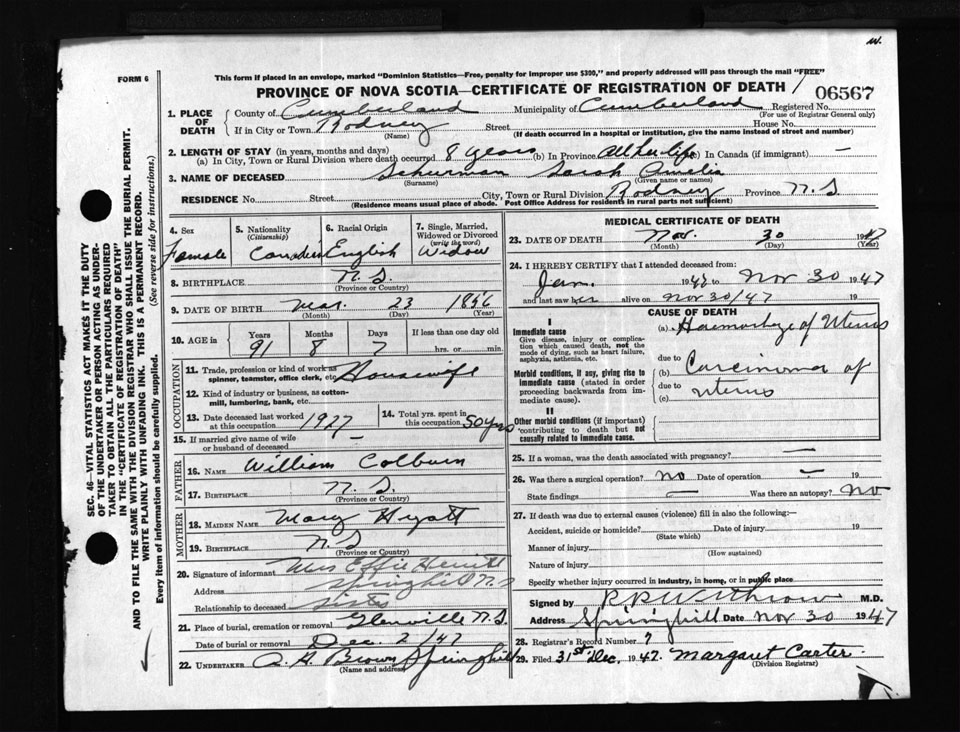 w.
FORM 6
This form if placed in an envelope, marked "Dominion Statistics—Free, penalty for improper use $300," and properly addressed will pass through the mail "FREE"
PROVINCE OF NOVA SCOTIA—CERTIFICATE OF REGISTRATION OF DEATH
06567
1. PLACE OF DEATH
County of Cumberland Municipality of Cumberland Registered No.
(For use of Registrar General only)
If in City or Town Rodney Street House No.
(Name) (If death occurred in a hospital or institution, give the name instead of street and number)
2. LENGTH OF STAY (in years, months and days)
(a) In City, Town or Rural Division where death occurred 8 years (b) In Province All her life (c) In Canada (if immigrant) —
3. NAME OF DECEASED Schurman Sarah Amelia
(Surname) (Given name or names)
RESIDENCE No. Street City, Town or Rural Division Rodney Province N.S.
(Residence means usual place of abode. Post Office Address for residents in rural parts not sufficient)
4. Sex
Female
5. Nationality
(Citizenship)
Canadian
6. Racial Origin
English
7. Single, Married, Widowed or Divorced
(write the word)
Widow
8. BIRTHPLACE N.S.
(Province or Country)
9. DATE OF BIRTH Mar. 23 1856
(Month) (Day) (Year)
10. AGE in Years Months Days If less than one day old
91 8 7 hrs. or min.
OCCUPATION
11. Trade, profession or kind of work as spinner, teamster, office clerk, etc. Housewife
12. Kind of industry or business, as cotton-mill, lumbering, bank, etc.
13. Date deceased last worked at this occupation 1927
14. Total yrs. spent in this occupation 50 yrs
15. If married give name of wife or husband of deceased —
FATHER
16. NAME William Colburn
17. BIRTHPLACE N.S.
(Province or Country)
MOTHER
18. MAIDEN NAME Mary Hyatt
19. BIRTHPLACE N.S
(Province or Country)
20. Signature of informant Mrs Effie
Address Springhill N.S
Relationship to deceased Sister
21. Place of burial, cremation or removal Glenville N.S.
Date of burial or removal Dec. 2/47
22. UNDERTAKER A. H. Brown Springhill
(Name and address)
MEDICAL CERTIFICATE OF DEATH
23. DATE OF DEATH Nov. 30 1947
(Month) (Day) (Year)
24. I HEREBY CERTIFY that I attended deceased from:
Jan. 19 to Nov 30 1947
and last saw her alive on Nov 30/47 19
CAUSE OF DEATH
I
Immediate cause
Give disease, injury or complication which caused death, not the mode of dying, such as heart failure, asphyxia, asthenia, etc.
(a) Haemorrhage of Uterus
due to
Morbid conditions, if any, giving rise to immediate cause (stated in order proceeding backwards from immediate cause).
(b) Carcinoma of
due to
(c) uterus
II
Other morbid conditions (if important) contributing to death but not causally related to immediate cause.
25. If a woman, was the death associated with pregnancy? —
26. Was there a surgical operation? no Date of operation — 19
State findings — Was there an autopsy? No
27. If death was due to external causes (violence) fill in also the following:—
Accident, suicide or homicide? Date of injury 19
(State which)
Manner of injury
(How sustained)
Nature of injury
Specify whether injury occurred in industry, in home, or in public place
Signed by R P Withrow M.D.
Address Springhill Date Nov 30 1947
28. Registrar's Record Number 9
29. Filed 31st Dec, 1947. Margaret Carter
(Division Registrar)
SEC. 46—VITAL STATISTICS ACT MAKES IT THE DUTY
OF THE UNDERTAKER OR PERSON ACTING AS UNDER-
TAKER TO OBTAIN ALL THE PARTICULARS REQUIRED
IN THE "CERTIFICATE OF REGISTRATION OF DEATH"
AND TO FILE THE SAME WITH THE DIVISION REGISTRAR WHO SHALL ISSUE THE BURIAL PERMIT.
WRITE PLAINLY WITH UNFADING INK. THIS IS A PERMANENT RECORD.
Every item of information should be carefully supplied. (See reverse side for instructions.)